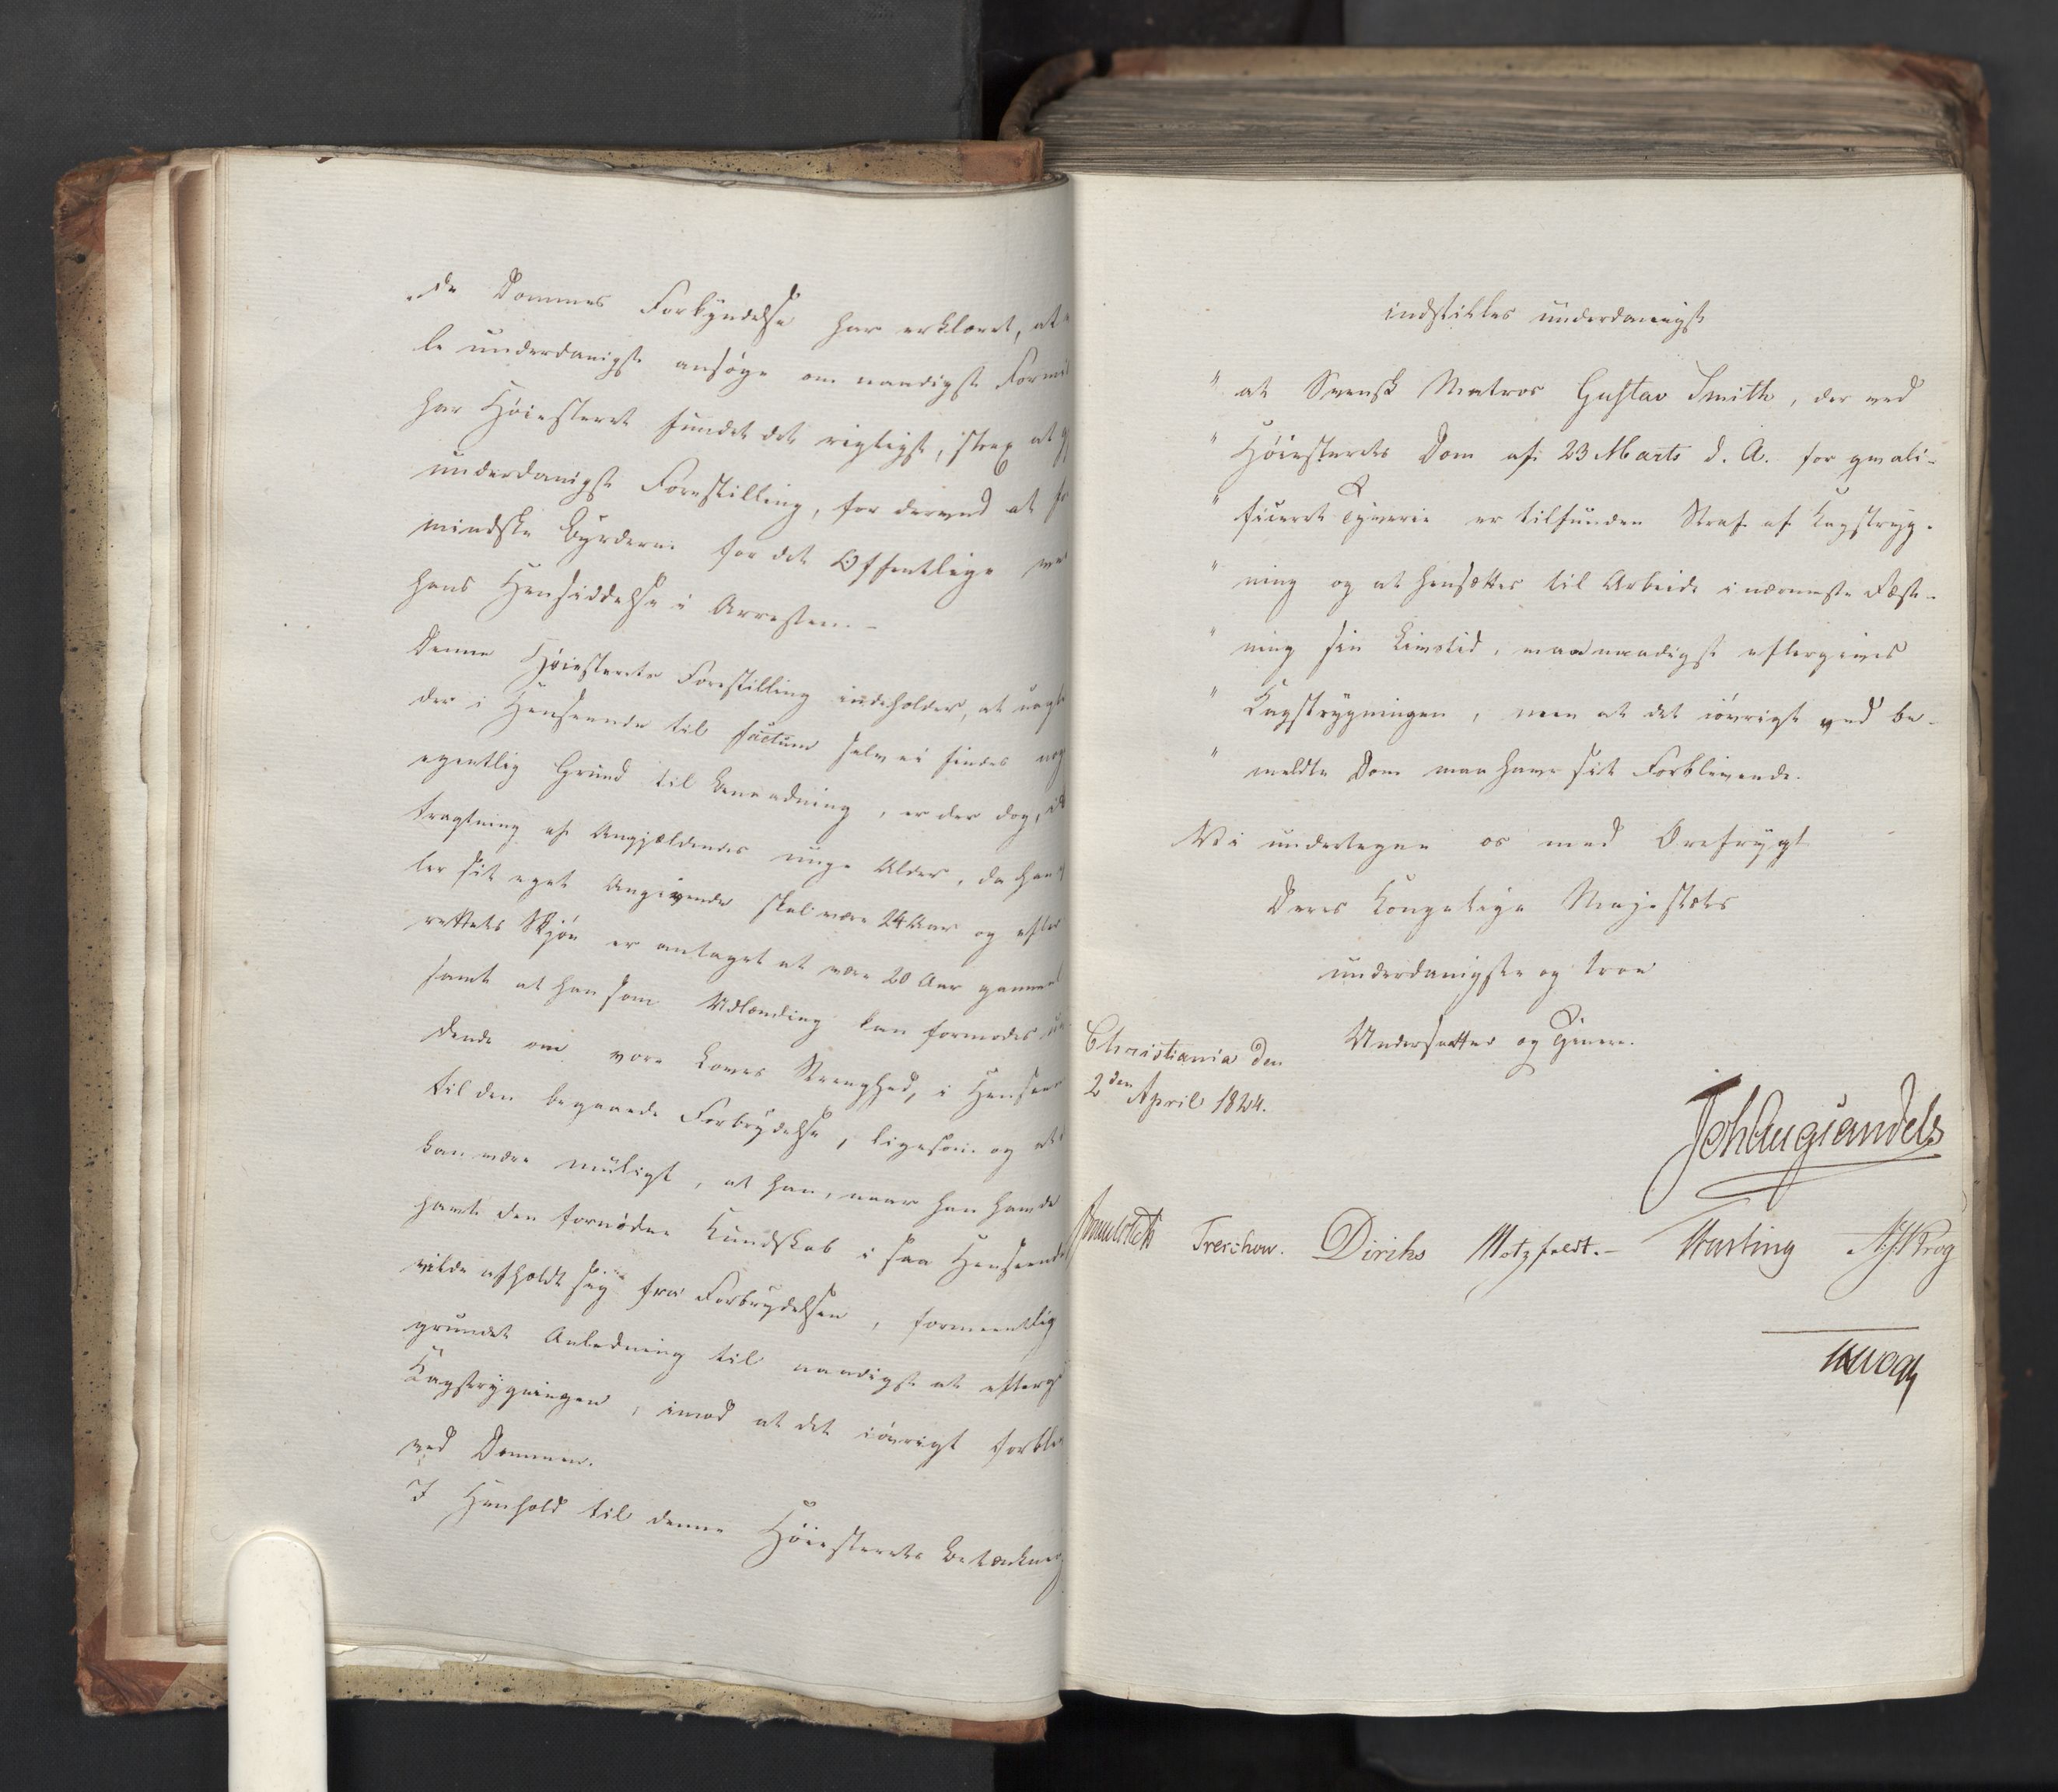 de Dommes Forkyndelse har erklæret, at
le underdanigst ansøge om naadigst Formil
har Høiesteret fundet det rigtigst, strax at
underdanigst Forestilling, for derved at
mindske Byrderne for det Offentlige
hans Hensiddelse i Arresten. -
Denne Høiesterets Forestilling indeholder, at uagt
der i Henseende til factum selv ei findes nog
egentlig Grund til Benaadning, er der dog, i
tragtning af Angjældendes unge Alder, da han
ter sit eget Angivende skal være 24 Aar og efter
rettets Skjøn er antaget at være 20 Aar gammel
samt at han som Udlænding kan formodes
dende om vore Loves Strenghed, i Henseen
til den begaaede Forbrydelse, ligesom og at
kan være muligt, at han, naar han havde
havt den fornødne Kundskab i saa Henseende
vilde afholdt sig fra Forbrydelsen, formeentlig
grundet Anledning til naadigst at efterg
Kagstrygningen, imod at det iøvrigt forbli
ved Dommen.
I Henhold til denne Høiesterets Betænkning
indstilles underdanigst
" at Svensk Matros Gustav Smith, der ved
" Høiesterets Dom af 23 Marts d. A. for qvali-
" ficeret Tyverie er tilfunden Straf af Kagstryg-
" ning og at hensættes til Arbeide i nærmeste Fæst-
" ning sin Livstid, maa naadigst eftergives
" Kagstrygningen, men at det iøvrigt ved be-
" meldte Dom maa have sit Forblivende.
Vi undertegne os med Ærefrygt
Deres Kongelige Majestæts
underdanigste og troe
Undersatter og Tjenere.
Christiania den
2den April 1824.
Joh Aug Sandels
Sommerhielm Treschow. Diriks Motzfeldt. - Fasting N.J. Krog
Vogt